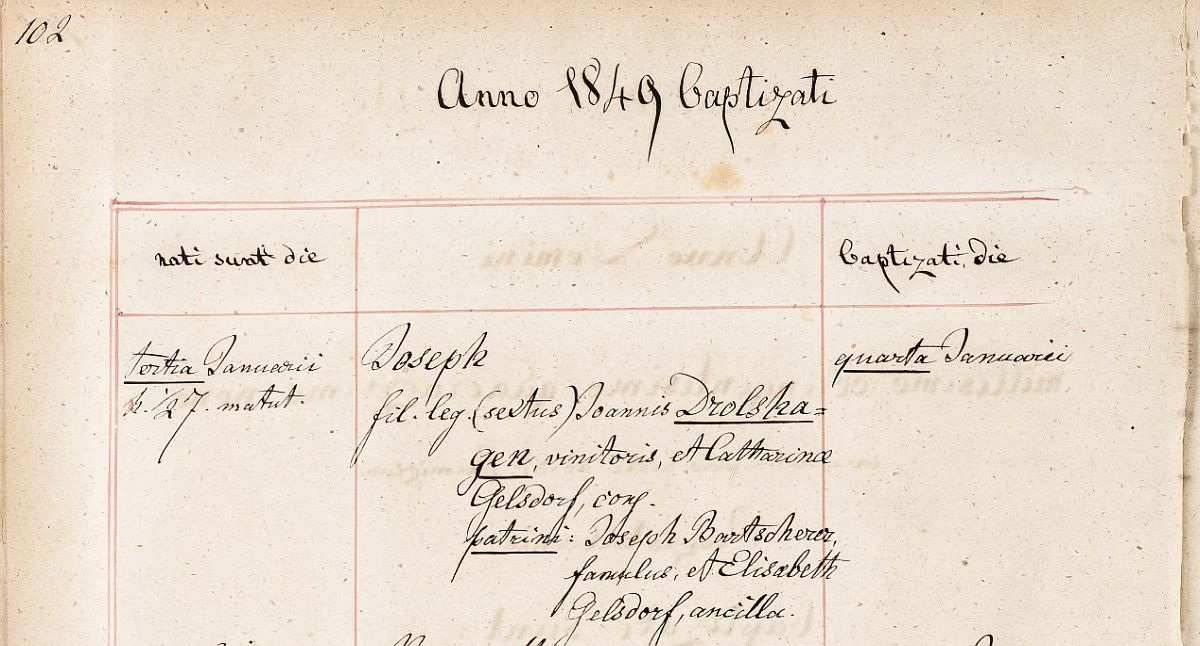 102
Anno 1849 baptizati
nati sunt die
baptizati die
tertia Januarii
h. 27. matut.
Joseph
fil. leg. (sextus) Joannis Drolsha=
gen, vinitoris, et Catharinæ
Gelsdorf, conj.
patrini: Joseph Bartscherer,
famulus, et Elisabeth
Gelsdorf, ancilla.
quarta Januarii